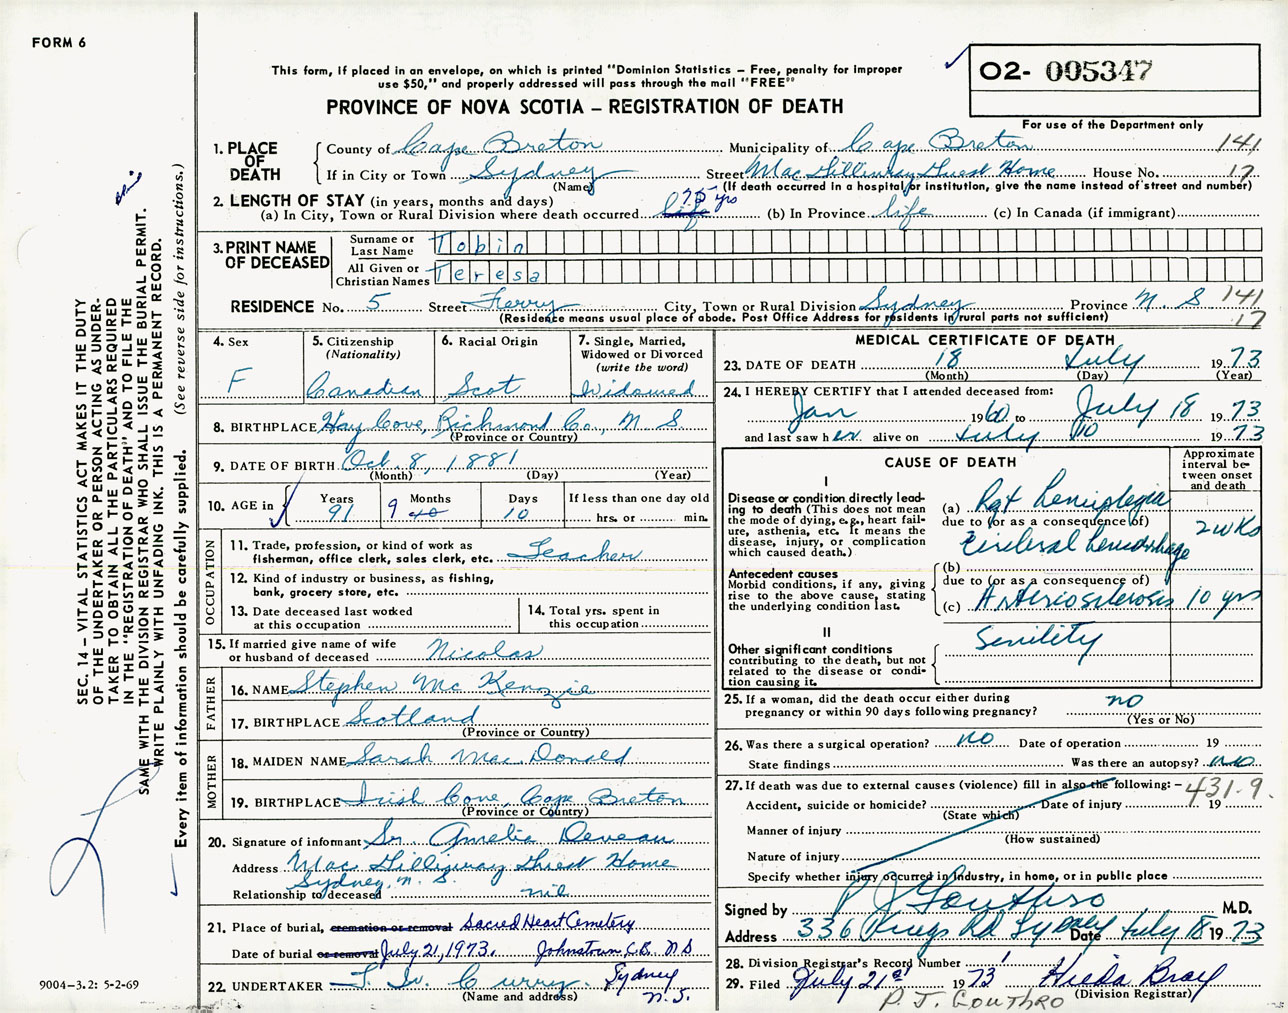 FORM 6
O2- 005347
For use of the Department only
This form, if placed in an envelope, on which is printed "Dominion Statistics – Free, penalty for improper
use $50," and properly addressed will pass through the mail "FREE"
PROVINCE OF NOVA SCOTIA – REGISTRATION OF DEATH
1. PLACE OF DEATH
County of Cape Breton Municipality of Cape Breton 141
If in City or Town Sydney Street MacGillivray Guest Home House No. 17
(Name) (If death occurred in a hospital or institution, give the name instead of street and number)
2. LENGTH OF STAY (in years, months and days)
(a) In City, Town or Rural Division where death occurred life 75 yrs (b) In Province life (c) In Canada (if immigrant)
3. PRINT NAME OF DECEASED
Surname or Last Name Tobin
All Given or Christian Names Teresa
RESIDENCE No. 5 Street Ferry City, Town or Rural Division Sydney Province N. S 141
(Residence means usual place of abode. Post Office Address for residents in rural parts not sufficient) 17
4. Sex F
5. Citizenship (Nationality) Canadian
6. Racial Origin Scot
7. Single, Married, Widowed or Divorced (write the word) Widowed
8. BIRTHPLACE Hay Cove, Richmond Co., N S
(Province or Country)
9. DATE OF BIRTH Oct. 8, 1881
(Month) (Day) (Year)
10. AGE in Years 91 Months 9 Days 10 If less than one day old
hrs. or min.
OCCUPATION
11. Trade, profession, or kind of work as
fisherman, office clerk, sales clerk, etc. Teacher
12. Kind of industry or business, as fishing,
bank, grocery store, etc.
13. Date deceased last worked
at this occupation
14. Total yrs. spent in
this occupation
15. If married give name of wife
or husband of deceased Nicolas
FATHER
16. NAME Stephen McKenzie
17. BIRTHPLACE Scotland
(Province or Country)
MOTHER
18. MAIDEN NAME Sarah MacDonald
19. BIRTHPLACE Irish Cove, Cape Breton
(Province or Country)
20. Signature of informant Sr. Amelia Deveau
Address MacGillivray Guest Home
Sydney, N. S.
Relationship to deceased nil
21. Place of burial, cremation or removal Sacred Heart Cemetery
Date of burial or removal July 21, 1973. Johnstown C.B. N.S
22. UNDERTAKER T. W. Curry Sydney
(Name and address) N.S.
MEDICAL CERTIFICATE OF DEATH
23. DATE OF DEATH 18 July 1973
(Month) (Day) (Year)
24. I HEREBY CERTIFY that I attended deceased from:
Jan 1960 to July 18 1973
and last saw her alive on July 10 1973
CAUSE OF DEATH
Approximate interval between onset and death
I
Disease or condition directly lead-
ing to death (This does not mean
the mode of dying, e.g., heart fail-
ure, asthenia, etc. It means the
disease, injury, or complication
which caused death.)
(a) Rgt hemiplegia
due to (or as a consequence of) 2 wks
Cerebral hemorrhage
Antecedent causes
Morbid conditions, if any, giving
rise to the above cause, stating
the underlying condition last.
(b)
due to (or as a consequence of)
(c) Arteriosclerosis 10 yrs
II
Senility
Other significant conditions
contributing to the death, but not
related to the disease or condi-
tion causing it.
25. If a woman, did the death occur either during
pregnancy or within 90 days following pregnancy? no
(Yes or No)
26. Was there a surgical operation? no Date of operation 19
State findings Was there an autopsy? no
27. If death was due to external causes (violence) fill in also the following: – 431.9.
Accident, suicide or homicide? Date of injury 19
(State which)
Manner of injury
(How sustained)
Nature of injury
Specify whether injury occurred in industry, in home, or in public place
Signed by P J Gouthro M.D.
Address 336 Kings Rd Sydney Date July 18 1973
28. Division Registrar's Record Number
29. Filed July 21st 1973 Hilda Bray
P. J. GOUTHRO (Division Registrar)
9004-3.2: 5-2-69
SEC. 14 – VITAL STATISTICS ACT MAKES IT THE DUTY
OF THE UNDERTAKER OR PERSON ACTING AS UNDER-
TAKER TO OBTAIN ALL THE PARTICULARS REQUIRED
IN THE "REGISTRATION OF DEATH" AND TO FILE THE
SAME WITH THE DIVISION REGISTRAR WHO SHALL ISSUE THE BURIAL PERMIT.
WRITE PLAINLY WITH UNFADING INK. THIS IS A PERMANENT RECORD.
Every item of information should be carefully supplied. (See reverse side for instructions.)